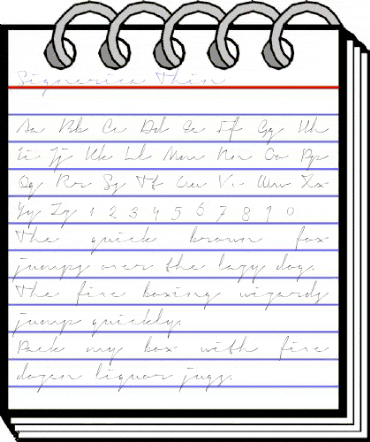 Signerica Thin
Aa Bb Cc Dd Ee Ff Gg Hh
Ii Jj Kk Ll Mm Nn Oo Pp
Qq Rr Ss Tt Uu Vv Ww Xx
Yy Zz 1 2 3 4 5 6 7 8 9 0
The quick brown fox
jumps over the lazy dog.
The five boxing wizards
jump quickly.
Pack my box with five
dozen liquor jugs.